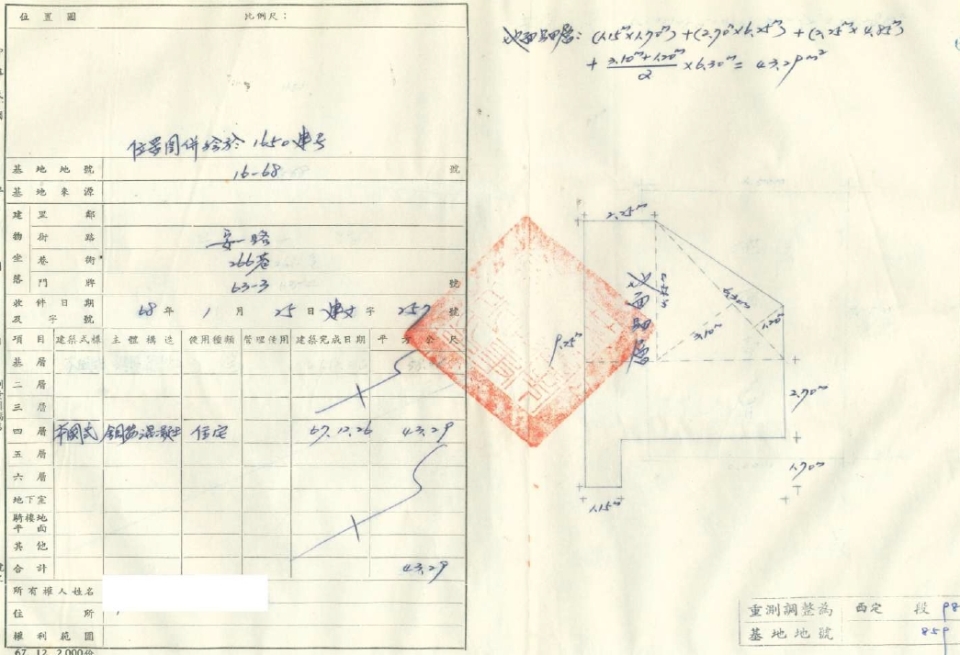 位置圖 比例尺：
位置圖併繪於1650建号
基地地號 16-68 號
基地來源
建物坐落
里鄰
街路 安一路
巷衖 266巷
門牌 63-3 號
收件日期及字號 68年1月25日 字257號
項目 建築式樣 主體構造 使用種類 管理使用 建築完成日期 平方公尺
基層
二層
三層
四層 本國式 鋼筋混凝土 住宅 67.12.26 43.29
五層
六層
地下室
騎樓地平面
其他
合計 43.29
所有權人姓名
住所
權利範圍
67.12.2,000份
(1.15ᵐ×1.70ᵐ)+(2.90ᵐ×6.25ᵐ)+(2.25ᵐ×4.85ᵐ)
+ (3.10ᵐ+1.20ᵐ)/2 ×6.30ᵐ = 43.29m²
2.25ᵐ
6.30ᵐ
3.10ᵐ
1.20ᵐ
9.25ᵐ
2.90ᵐ
1.70ᵐ
1.15ᵐ
重測調整為 西定 段
基地地號 859